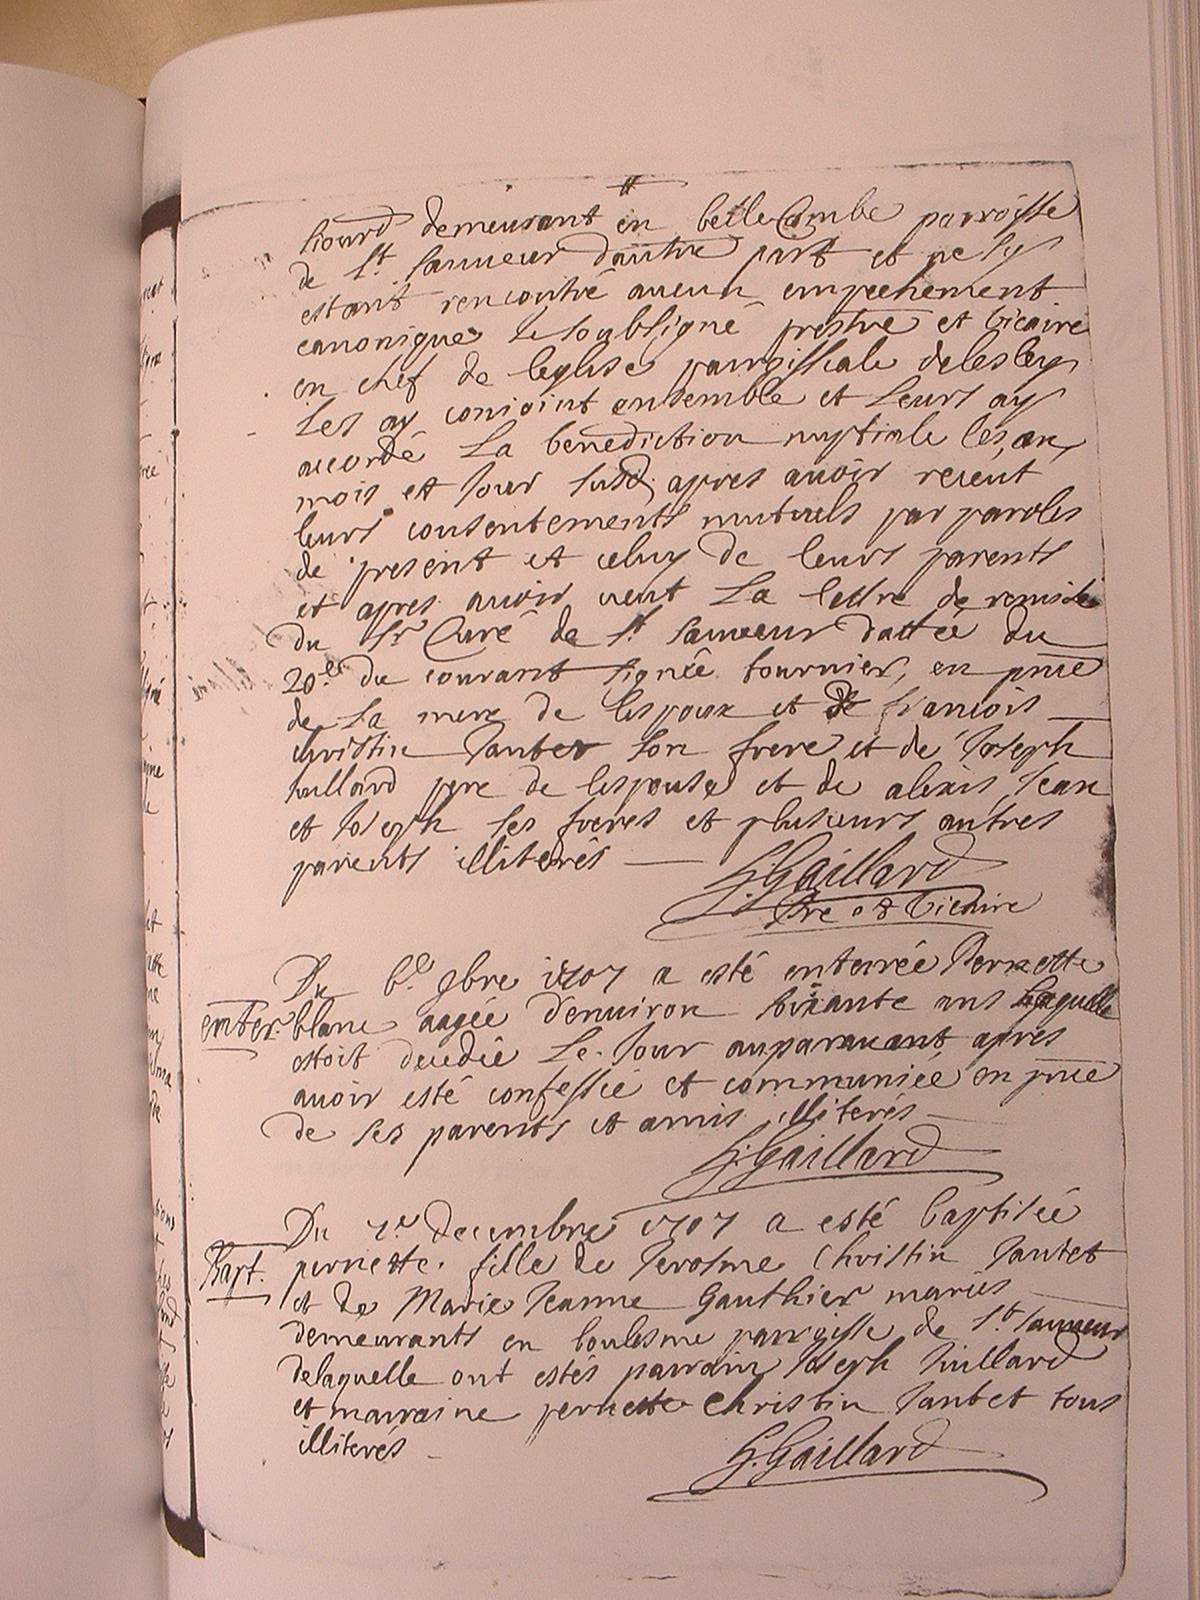 demeurant en belle Combe parroisse
de St Sauveur dautre part et ne sy
estant rencontré aucun empechement
canonique le soubsigné prestre et vicaire
en chef de leglise parroissiale de
les ay conioint ensemble et leurs ay
accordé la benediction nuptiale les an
mois et jour susd. apres avoir receut
leurs consentements mutuels par paroles
de present et celuy de leurs parents
et apres avoir veut la lettre de remise
du Sr Curé de St Sauveur dattée du
20.e du courant signée tournier, en pnce
de la mere de lespoux et de francois
christin Jantet son frere et de Joseph
Juillard pere de lespouse et de alexis, Jean
et Joseph ses freres et plusieurs autres
parents illiterés
G: Gaillard
Pre et Vicaire
Du 6.e 9bre 1707 a esté enterrée Pernette
enter. blanc aagée denviron soixante ans laquelle
estoit decedée le jour auparavant apres
avoir esté confessée et communiée en pnce
de ses parents et amis illiterés
G: Gaillard
Du decembre 1707 a esté baptisée
Bapt. pernette fille de Jerosme Christin Jantet
et de Marie Jeanne Gauthier mariés
demeurants en boulesme parroisse de St Sauveur
delaquelle ont estés parrain Joseph Juillard
et marraine pernette Christin Jantet tous
illiterés
G. Gaillard